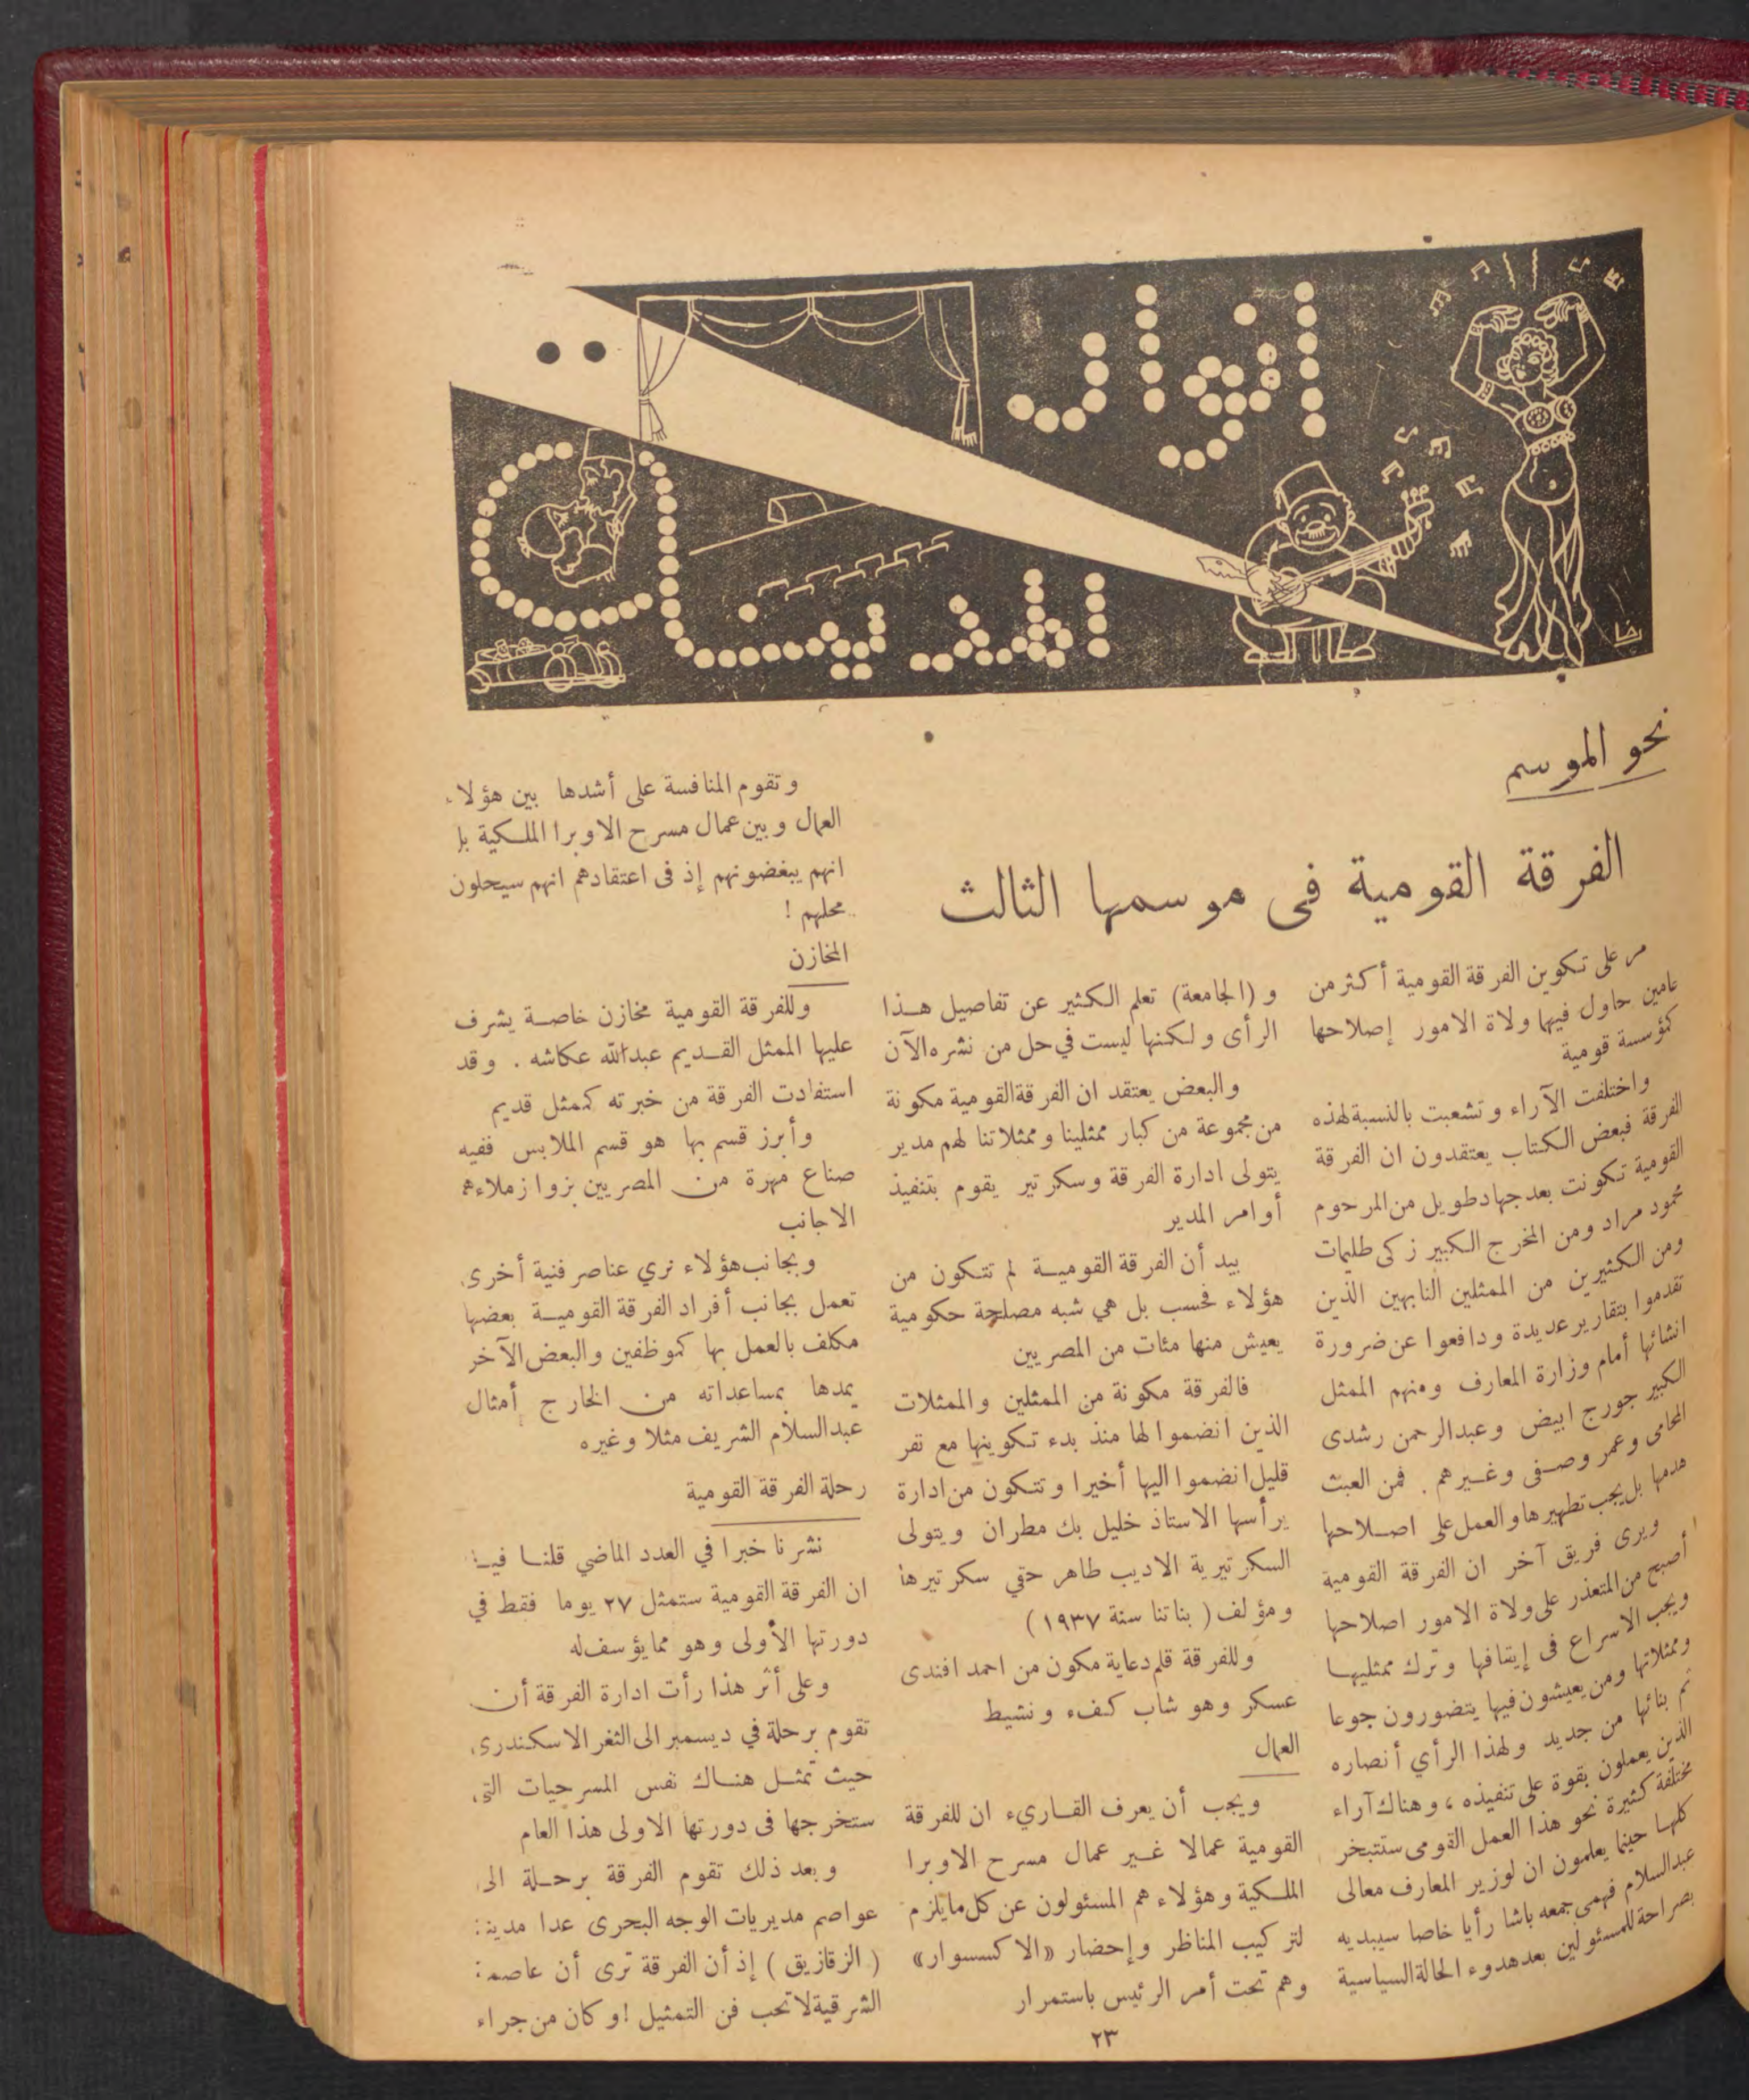 انوار
المدينة
نحو الموسم
الفرقة القومية فى موسمها الثالث
مر على تكوين الفرقة القومية أكثر من
عامين حاول فيها ولاة الامور إصلاحها
كمؤسسة قومية
واختلفت الآراء وتشعبت بالنسبة لهذه
الفرقة فبعض الكتاب يعتقدون ان الفرقة
القومية تكونت بعد جهاد طويل من المرحوم
محمود مراد ومن المخرج الكبير زكى طليمات
ومن الكثيرين من الممثلين النابهين الذين
تقدموا بتقارير عديدة ودافعوا عن ضرورة
انشائها أمام وزارة المعارف ومنهم الممثل
الكبير جورج ابيض وعبدالرحمن رشدى
المحامى وعمر وصفى وغيرهم . فمن العبث
هدمها بل يجب تطهيرها والعمل على اصلاحها
ويرى فريق آخر ان الفرقة القومية
أصبح من المتعذر على ولاة الامور اصلاحها
ويجب الاسراع فى إيقافها وترك ممثليها
وممثلاتها ومن يعيشون فيها يتضورون جوعا
ثم بنائها من جديد ولهذا الرأي أنصاره
الذين يعملون بقوة على تنفيذه ، وهناك آراء
مختلفة كثيرة نحو هذا العمل القومى ستتبخر
كلها حينما يعلمون ان لوزير المعارف معالى
عبدالسلام فهمى جمعه باشا رأيا خاصا سيبديه
بصراحة للمسئولين بعد هدوء الحالة السياسية
و (الجامعة) تعلم الكثير عن تفاصيل هذا
الرأى ولكنها ليست في حل من نشره الآن
والبعض يعتقد ان الفرقة القومية مكونة
من مجموعة من كبار ممثلينا وممثلاتنا لهم مدير
يتولى ادارة الفرقة وسكرتير يقوم بتنفيذ
أوامر المدير
بيد أن الفرقة القومية لم تتكون من
هؤلاء فحسب بل هي شبه مصلحة حكومية
يعيش منها مئات من المصريين
فالفرقة مكونة من الممثلين والممثلات
الذين انضموا لها منذ بدء تكوينها مع نفر
قليل انضموا اليها أخيرا وتتكون من ادارة
يرأسها الاستاذ خليل بك مطران ويتولى
السكرتيرية الاديب طاهر حقي سكرتيرها
ومؤلف ( بناتنا سنة ١٩٣٧ )
وللفرقة قلم دعاية مكون من احمد افندى
عسكر وهو شاب كفء ونشيط
العمال
ويجب أن يعرف القاريء ان للفرقة
القومية عمالا غير عمال مسرح الاوبرا
الملكية وهؤلاء هم المسئولون عن كل مايلزم
لتركيب المناظر وإحضار «الاكسسوار»
وهم تحت أمر الرئيس باستمرار
وتقوم المنافسة على أشدها بين هؤلاء
العمال وبين عمال مسرح الاوبرا الملكية بل
انهم يبغضونهم إذ فى اعتقادهم انهم سيحلون
محلهم !
المخازن
وللفرقة القومية مخازن خاصة يشرف
عليها الممثل القديم عبدالله عكاشه . وقد
استفادت الفرقة من خبرته كممثل قديم
وأبرز قسم بها هو قسم الملابس ففيه
صناع مهرة من المصريين بزوا زملاءهم
الاجانب
وبجانب هؤلاء نري عناصر فنية أخرى
تعمل بجانب أفراد الفرقة القومية بعضها
مكلف بالعمل بها كموظفين والبعض الآخر
يمدها بمساعداته من الخارج أمثال
عبدالسلام الشريف مثلا وغيره
رحلة الفرقة القومية
نشرنا خبرا في العدد الماضي قلنا فيه
ان الفرقة القومية ستمثل ٢٧ يوما فقط في
دورتها الأولى وهو مما يؤسف له
وعلى أثر هذا رأت ادارة الفرقة أن
تقوم برحلة في ديسمبر الى الثغر الاسكندرى
حيث تمثل هناك نفس المسرحيات التى
ستخرجها فى دورتها الاولى هذا العام
وبعد ذلك تقوم الفرقة برحلة الى
عواصم مديريات الوجه البحرى عدا مدينة
( الزقازيق ) إذ أن الفرقة ترى أن عاصمة
الشرقية لا تحب فن التمثيل ! وكان من جراء
٢٣